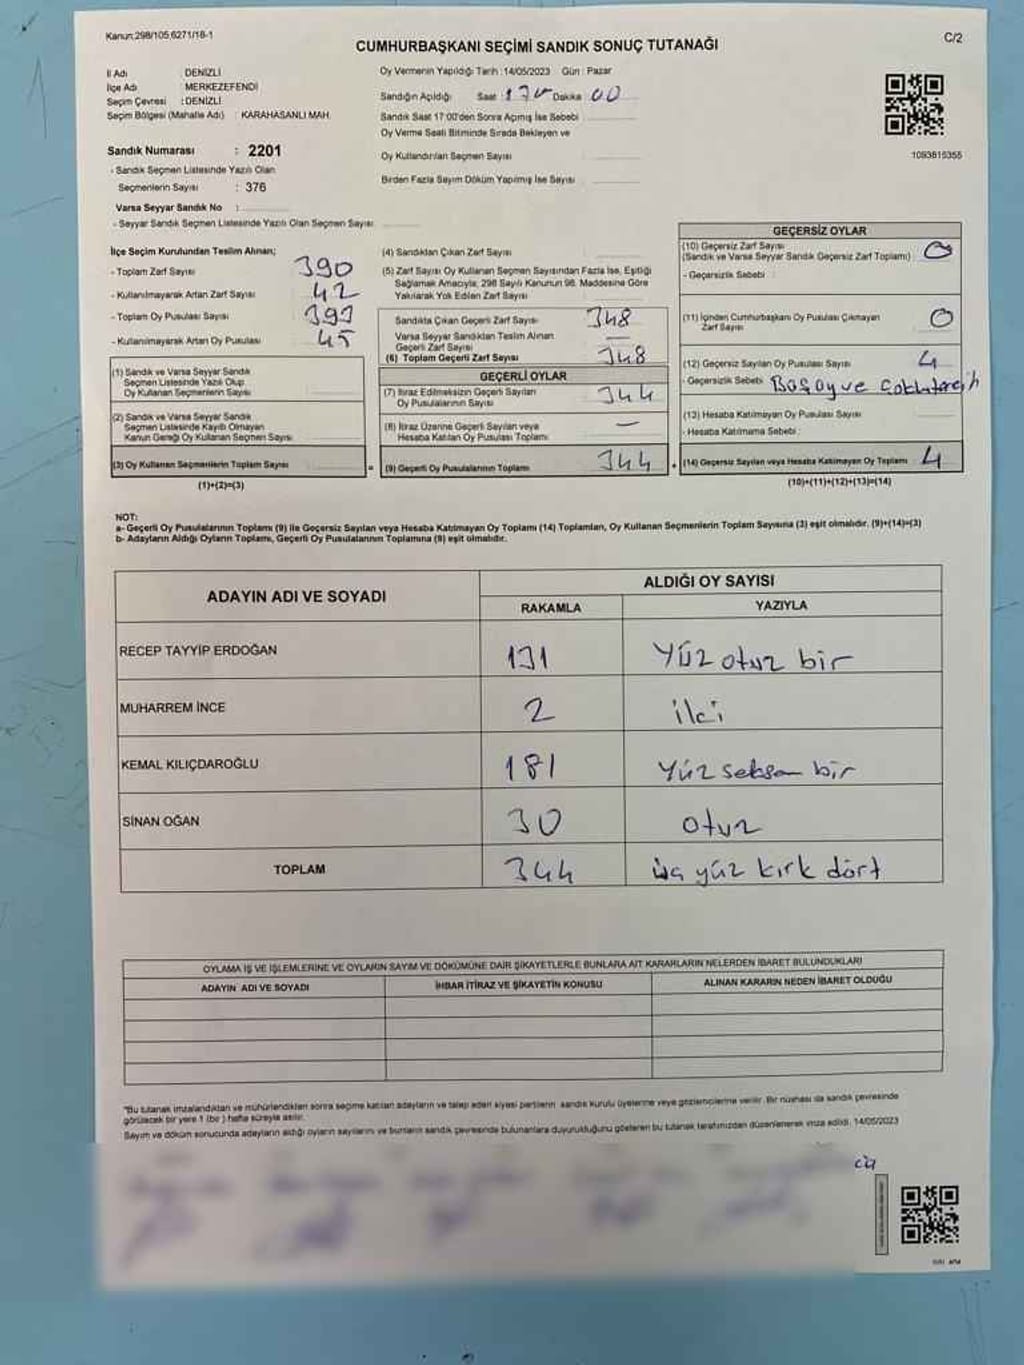 Kanun;298/105;6271/18-1
C/2
CUMHURBAŞKANI SEÇİMİ SANDIK SONUÇ TUTANAĞI
İl Adı : DENİZLİ
İlçe Adı : MERKEZEFENDİ
Seçim Çevresi : DENİZLİ
Seçim Bölgesi (Mahalle Adı) : KARAHASANLI MAH.
Sandık Numarası : 2201
- Sandık Seçmen Listesinde Yazılı Olan
Seçmenlerin Sayısı : 376
Varsa Seyyar Sandık No :
- Seyyar Sandık Seçmen Listesinde Yazılı Olan Seçmen Sayısı
Oy Vermenin Yapıldığı Tarih : 14/05/2023 Gün : Pazar
Sandığın Açıldığı Saat : 17 Dakika : 00
Sandık Saat 17:00'den Sonra Açımış İse Sebebi
Oy Verme Saati Bitiminde Sırada Bekleyen ve
Oy Kullandırılan Seçmen Sayısı
Birden Fazla Sayım Döküm Yapılmış İse Sayısı
1093615355
İlçe Seçim Kurulundan Teslim Alınan;
- Toplam Zarf Sayısı 390
- Kullanılmayarak Artan Zarf Sayısı 42
- Toplam Oy Pusulası Sayısı 393
- Kullanılmayarak Artan Oy Pusulası 45
(1) Sandık ve Varsa Seyyar Sandık
Seçmen Listesinde Yazılı Olup
Oy Kullanan Seçmenlerin Sayısı
(2) Sandık ve Varsa Seyyar Sandık
Seçmen Listesinde Kayıtlı Olmayan
Kanun Gereği Oy Kullanan Seçmen Sayısı
(3) Oy Kullanan Seçmenlerin Toplam Sayısı
(1)+(2)=(3)
=
(4) Sandıktan Çıkan Zarf Sayısı
(5) Zarf Sayısı Oy Kullanan Seçmen Sayısından Fazla İse, Eşitliği
Sağlamak Amacıyla; 298 Sayılı Kanunun 98. Maddesine Göre
Yakılarak Yok Edilen Zarf Sayısı
Sandıkta Çıkan Geçerli Zarf Sayısı 348
Varsa Seyyar Sandıktan Teslim Alınan
Geçerli Zarf Sayısı —
(6) Toplam Geçerli Zarf Sayısı 348
GEÇERLİ OYLAR
(7) İtiraz Edilmeksizin Geçerli Sayılan
Oy Pusulalarının Sayısı 344
(8) İtiraz Üzerine Geçerli Sayılan veya
Hesaba Katılan Oy Pusulası Toplamı —
(9) Geçerli Oy Pusulalarının Toplamı 344
+
GEÇERSİZ OYLAR
(10) Geçersiz Zarf Sayısı 0
(Sandık ve Varsa Seyyar Sandık Geçersiz Zarf Toplamı)
- Geçersizlik Sebebi :
(11) İçinden Cumhurbaşkanı Oy Pusulası Çıkmayan
Zarf Sayısı 0
(12) Geçersiz Sayılan Oy Pusulası Sayısı 4
- Geçersizlik Sebebi : Boş oy ve çoklu tercih
(13) Hesaba Katılmayan Oy Pusulası Sayısı
- Hesaba Katılmama Sebebi :
(14) Geçersiz Sayılan veya Hesaba Katılmayan Oy Toplamı 4
(10)+(11)+(12)+(13)=(14)
NOT:
a- Geçerli Oy Pusulalarının Toplamı (9) ile Geçersiz Sayılan veya Hesaba Katılmayan Oy Toplamı (14) Toplamları, Oy Kullanan Seçmenlerin Toplam Sayısına (3) eşit olmalıdır. (9)+(14)=(3)
b- Adayların Aldığı Oyların Toplamı, Geçerli Oy Pusulalarının Toplamına (9) eşit olmalıdır.
ADAYIN ADI VE SOYADI
ALDIĞI OY SAYISI
RAKAMLA YAZIYLA
RECEP TAYYİP ERDOĞAN 131 Yüz otuz bir
MUHARREM İNCE 2 iki
KEMAL KILIÇDAROĞLU 181 Yüz seksen bir
SİNAN OĞAN 30 otuz
TOPLAM 344 üç yüz kırk dört
OYLAMA İŞ VE İŞLEMLERİNE VE OYLARIN SAYIM VE DÖKÜMÜNE DAİR ŞİKAYETLERLE BUNLARA AİT KARARLARIN NELERDEN İBARET BULUNDUKLARI
ADAYIN ADI VE SOYADI İHBAR İTİRAZ VE ŞİKAYETİN KONUSU ALINAN KARARIN NEDEN İBARET OLDUĞU
*Bu tutanak imzalandıktan ve mühürlendikten sonra seçime katılan adayların ve talep eden siyasi partilerin sandık kurulu üyelerine veya gözlemcilerine verilir. Bir nüshası da sandık çevresinde
görülecek bir yere 1 (bir) hafta süreyle asılır.
Sayım ve döküm sonucunda adayların aldığı oyların sayılarını ve bunların sandık çevresinde bulunanlara duyurulduğunu gösteren bu tutanak tarafımızdan düzenlenerek imza edildi. 14/05/2023